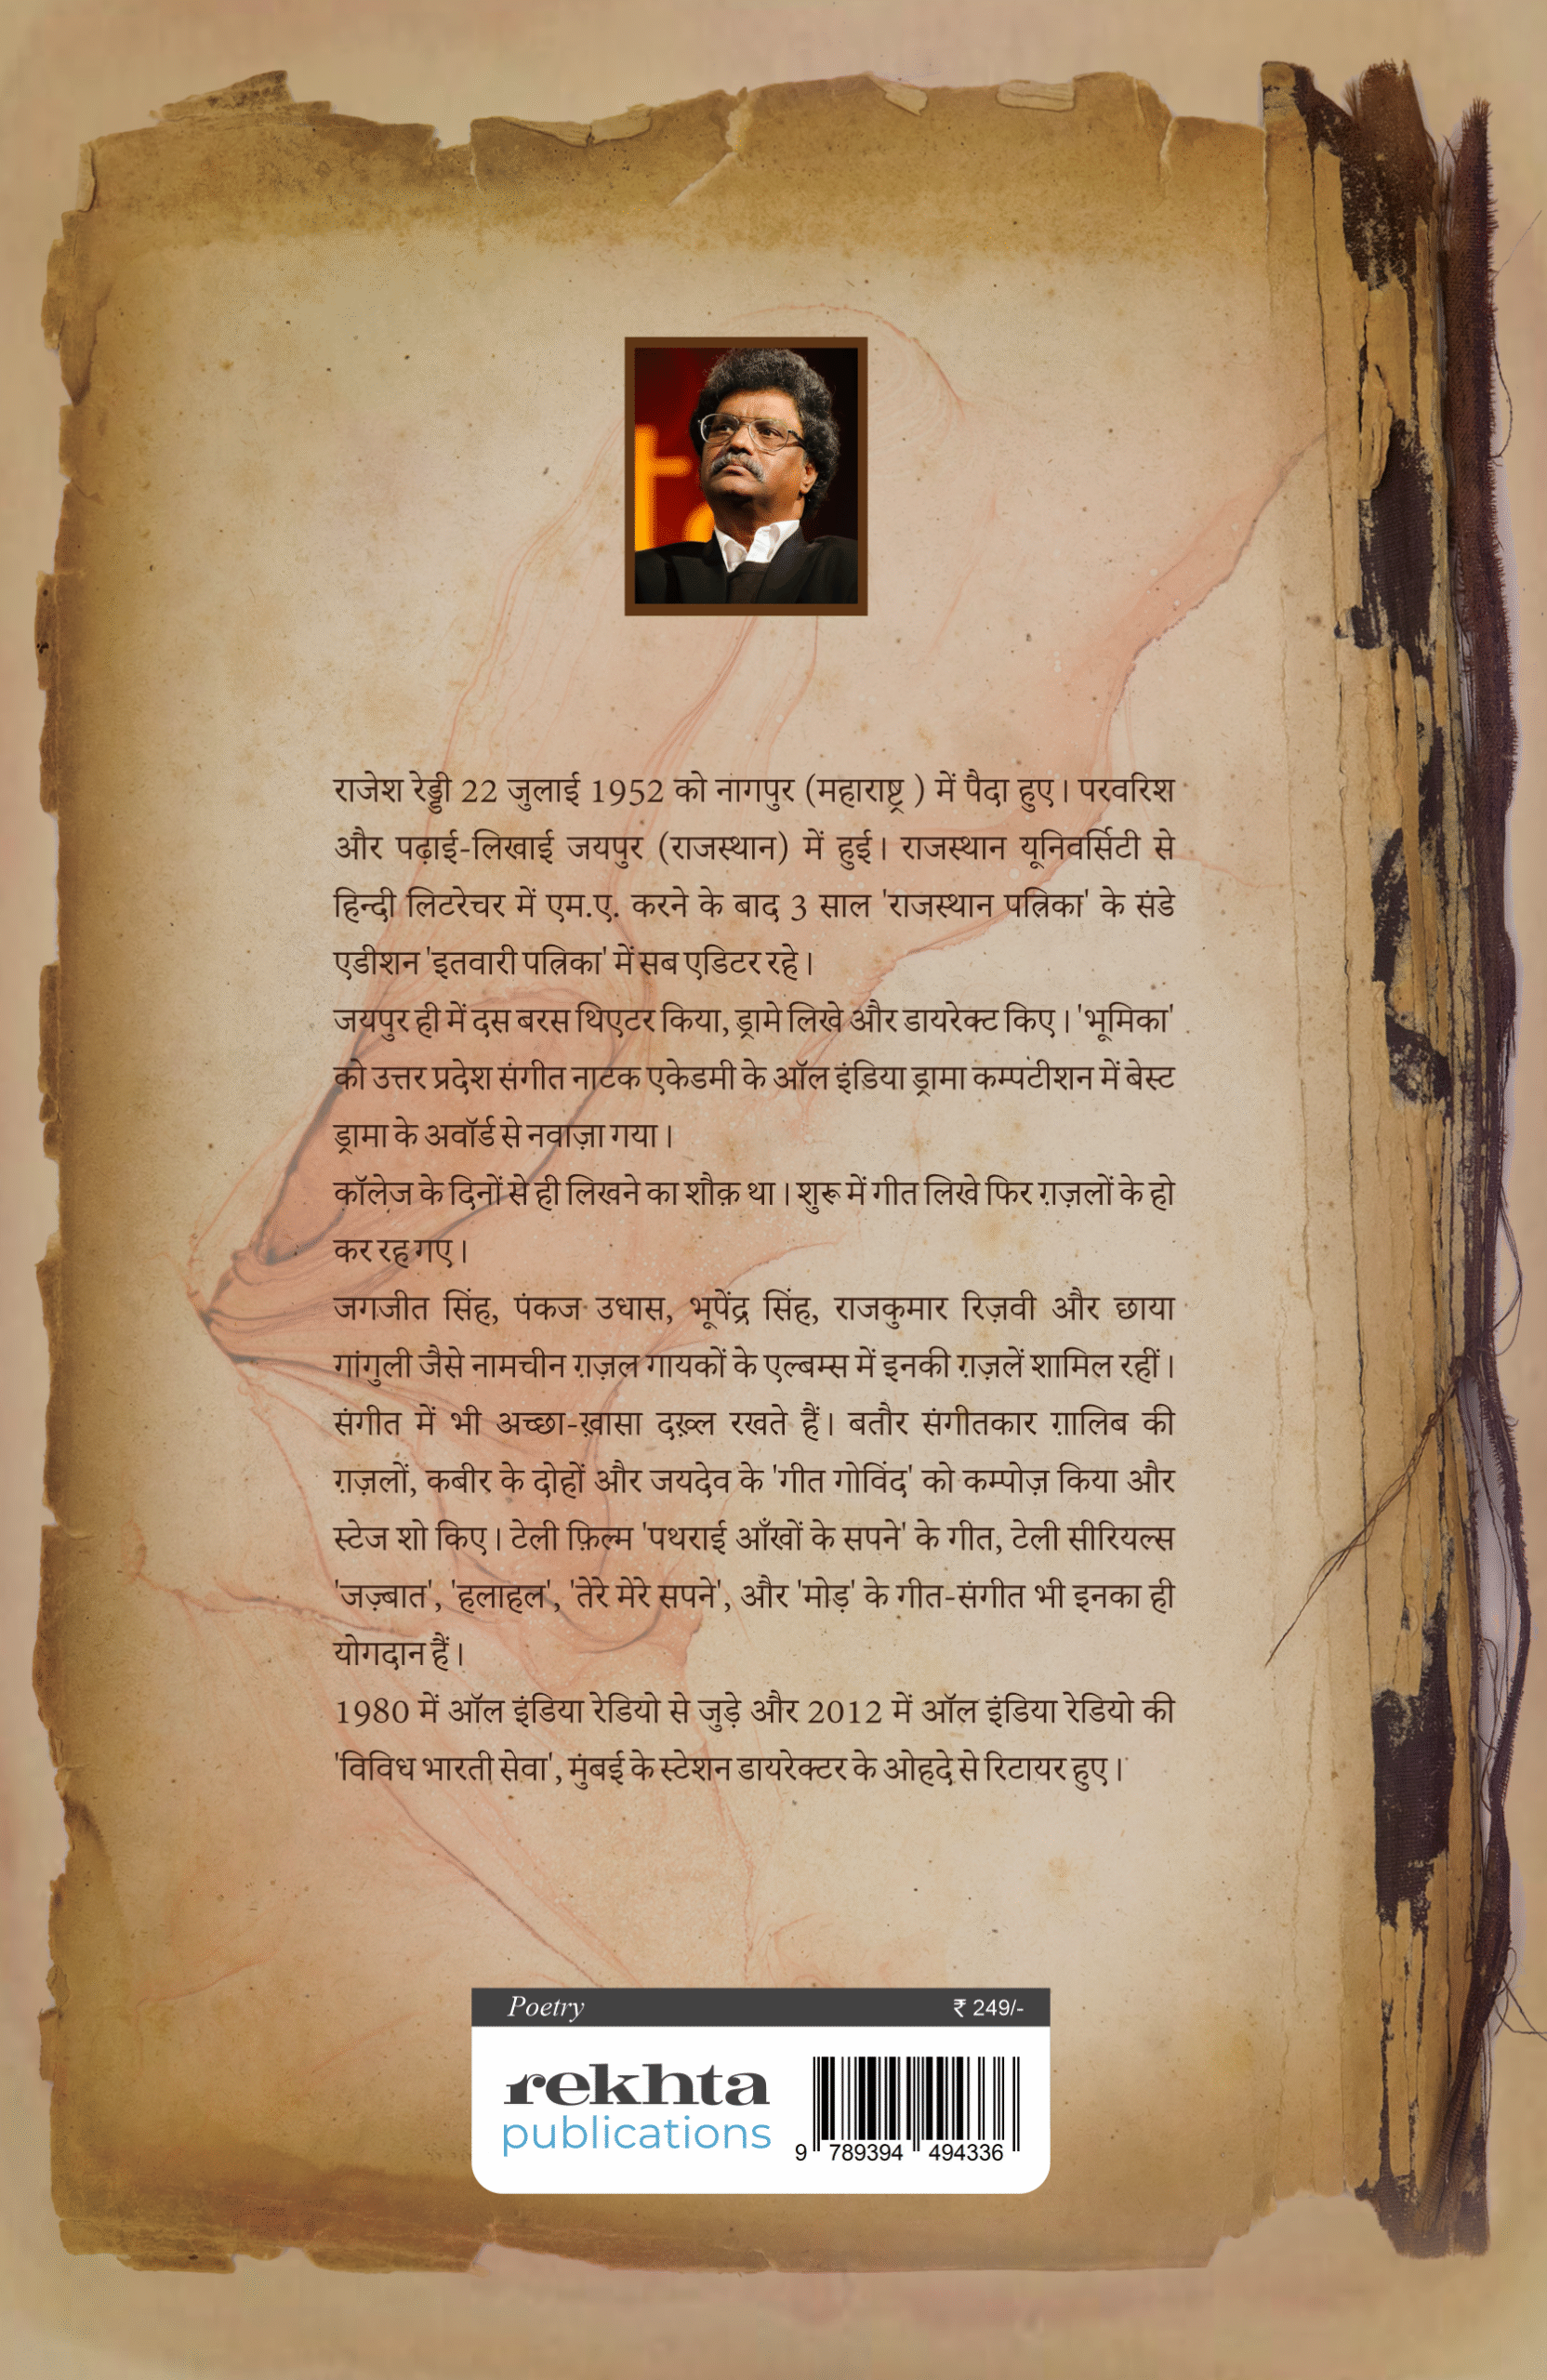 राजेश रेड्डी 22 जुलाई 1952 को नागपुर (महाराष्ट्र ) में पैदा हुए। परवरिश
और पढ़ाई-लिखाई जयपुर (राजस्थान) में हुई। राजस्थान यूनिवर्सिटी से
हिन्दी लिटरेचर में एम.ए. करने के बाद 3 साल 'राजस्थान पत्रिका' के संडे
एडीशन 'इतवारी पत्रिका' में सब एडिटर रहे।
जयपुर ही में दस बरस थिएटर किया, ड्रामे लिखे और डायरेक्ट किए। 'भूमिका'
को उत्तर प्रदेश संगीत नाटक एकेडमी के ऑल इंडिया ड्रामा कम्पटीशन में बेस्ट
ड्रामा के अवॉर्ड से नवाज़ा गया।
कॉलेज के दिनों से ही लिखने का शौक़ था। शुरू में गीत लिखे फिर ग़ज़लों के हो
कर रह गए।
जगजीत सिंह, पंकज उधास, भूपेंद्र सिंह, राजकुमार रिज़वी और छाया
गांगुली जैसे नामचीन ग़ज़ल गायकों के एल्बम्स में इनकी ग़ज़लें शामिल रहीं।
संगीत में भी अच्छा-ख़ासा दख़्ल रखते हैं। बतौर संगीतकार ग़ालिब की
ग़ज़लों, कबीर के दोहों और जयदेव के 'गीत गोविंद' को कम्पोज़ किया और
स्टेज शो किए। टेली फ़िल्म 'पथराई आँखों के सपने' के गीत, टेली सीरियल्स
'जज़्बात', 'हलाहल', 'तेरे मेरे सपने', और 'मोड़' के गीत-संगीत भी इनका ही
योगदान हैं।
1980 में ऑल इंडिया रेडियो से जुड़े और 2012 में ऑल इंडिया रेडियो की
'विविध भारती सेवा', मुंबई के स्टेशन डायरेक्टर के ओहदे से रिटायर हुए।
Poetry ₹ 249/-
rekhta
publications
9 789394 494336